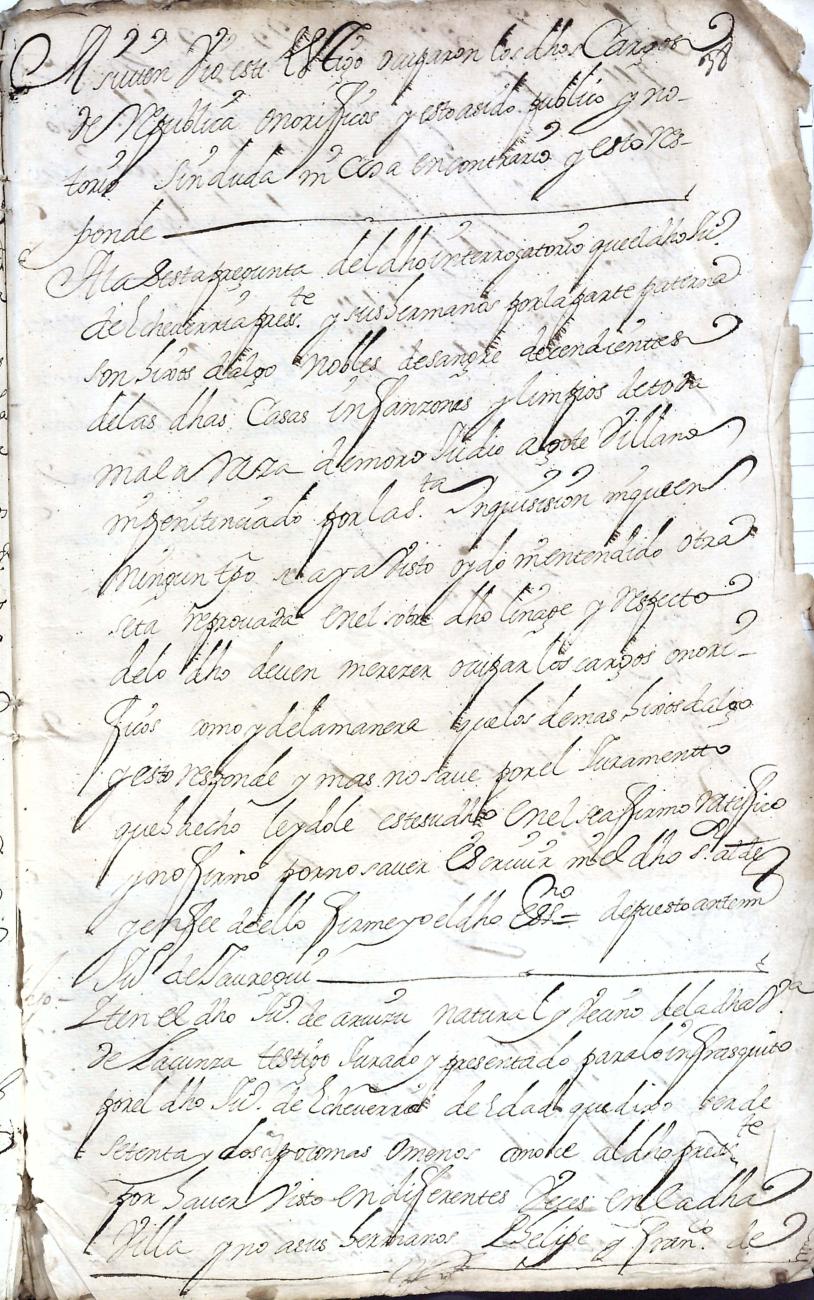 Asiuien Vio este testigo ocuparon los dhos Cargos
38
de Republica onorifficos y esto asido publico y no-
torio sin duda ni Cosa en contrario y esto res-
ponde
Ala Sesta pregunta del dho interrogatorio quel dho Ju.º
de Echeverria pres.te y sus hermanos por la parte paterna
son hixos dalgo Nobles de sangre decendientes
delas dhas Casas infanzonas y limpios de toda
mala Raza de moro Judio agote Villano
ni penitenciado por la S.ta Inquisision ni que en
Ningun tpo se aya Visto oydo ni entendido otra
seta reprouada en el sobre dho linage y respecto
delo dho deuen merezer ocupar los cargos onori-
ficos como y dela manera que los demas hixos dalgo
y esto responde y mas no saue por el Juramento
que hecho leydole este su dho en el se affirmo ratiffico
y no firmo por no sauer Escriuir ni el dho s.r alcde
y en fee de ello firme yo el dho Ess.no de puesto ante mi
Ju.º de Jauregui
Iten el dho Ju.º de aruizu natural y Vecino dela dha V.a
de Lacunza testigo Jurado y presentado para lo infrasquito
por el dho Ju.º de Echeverria de Edad que dixo ser de
setenta y dos a poco mas o menos conoce al dho press.te
por hauer Visto en differentes Veces en la dha
Villa y no a sus hermanos Phelipe y fran.co de